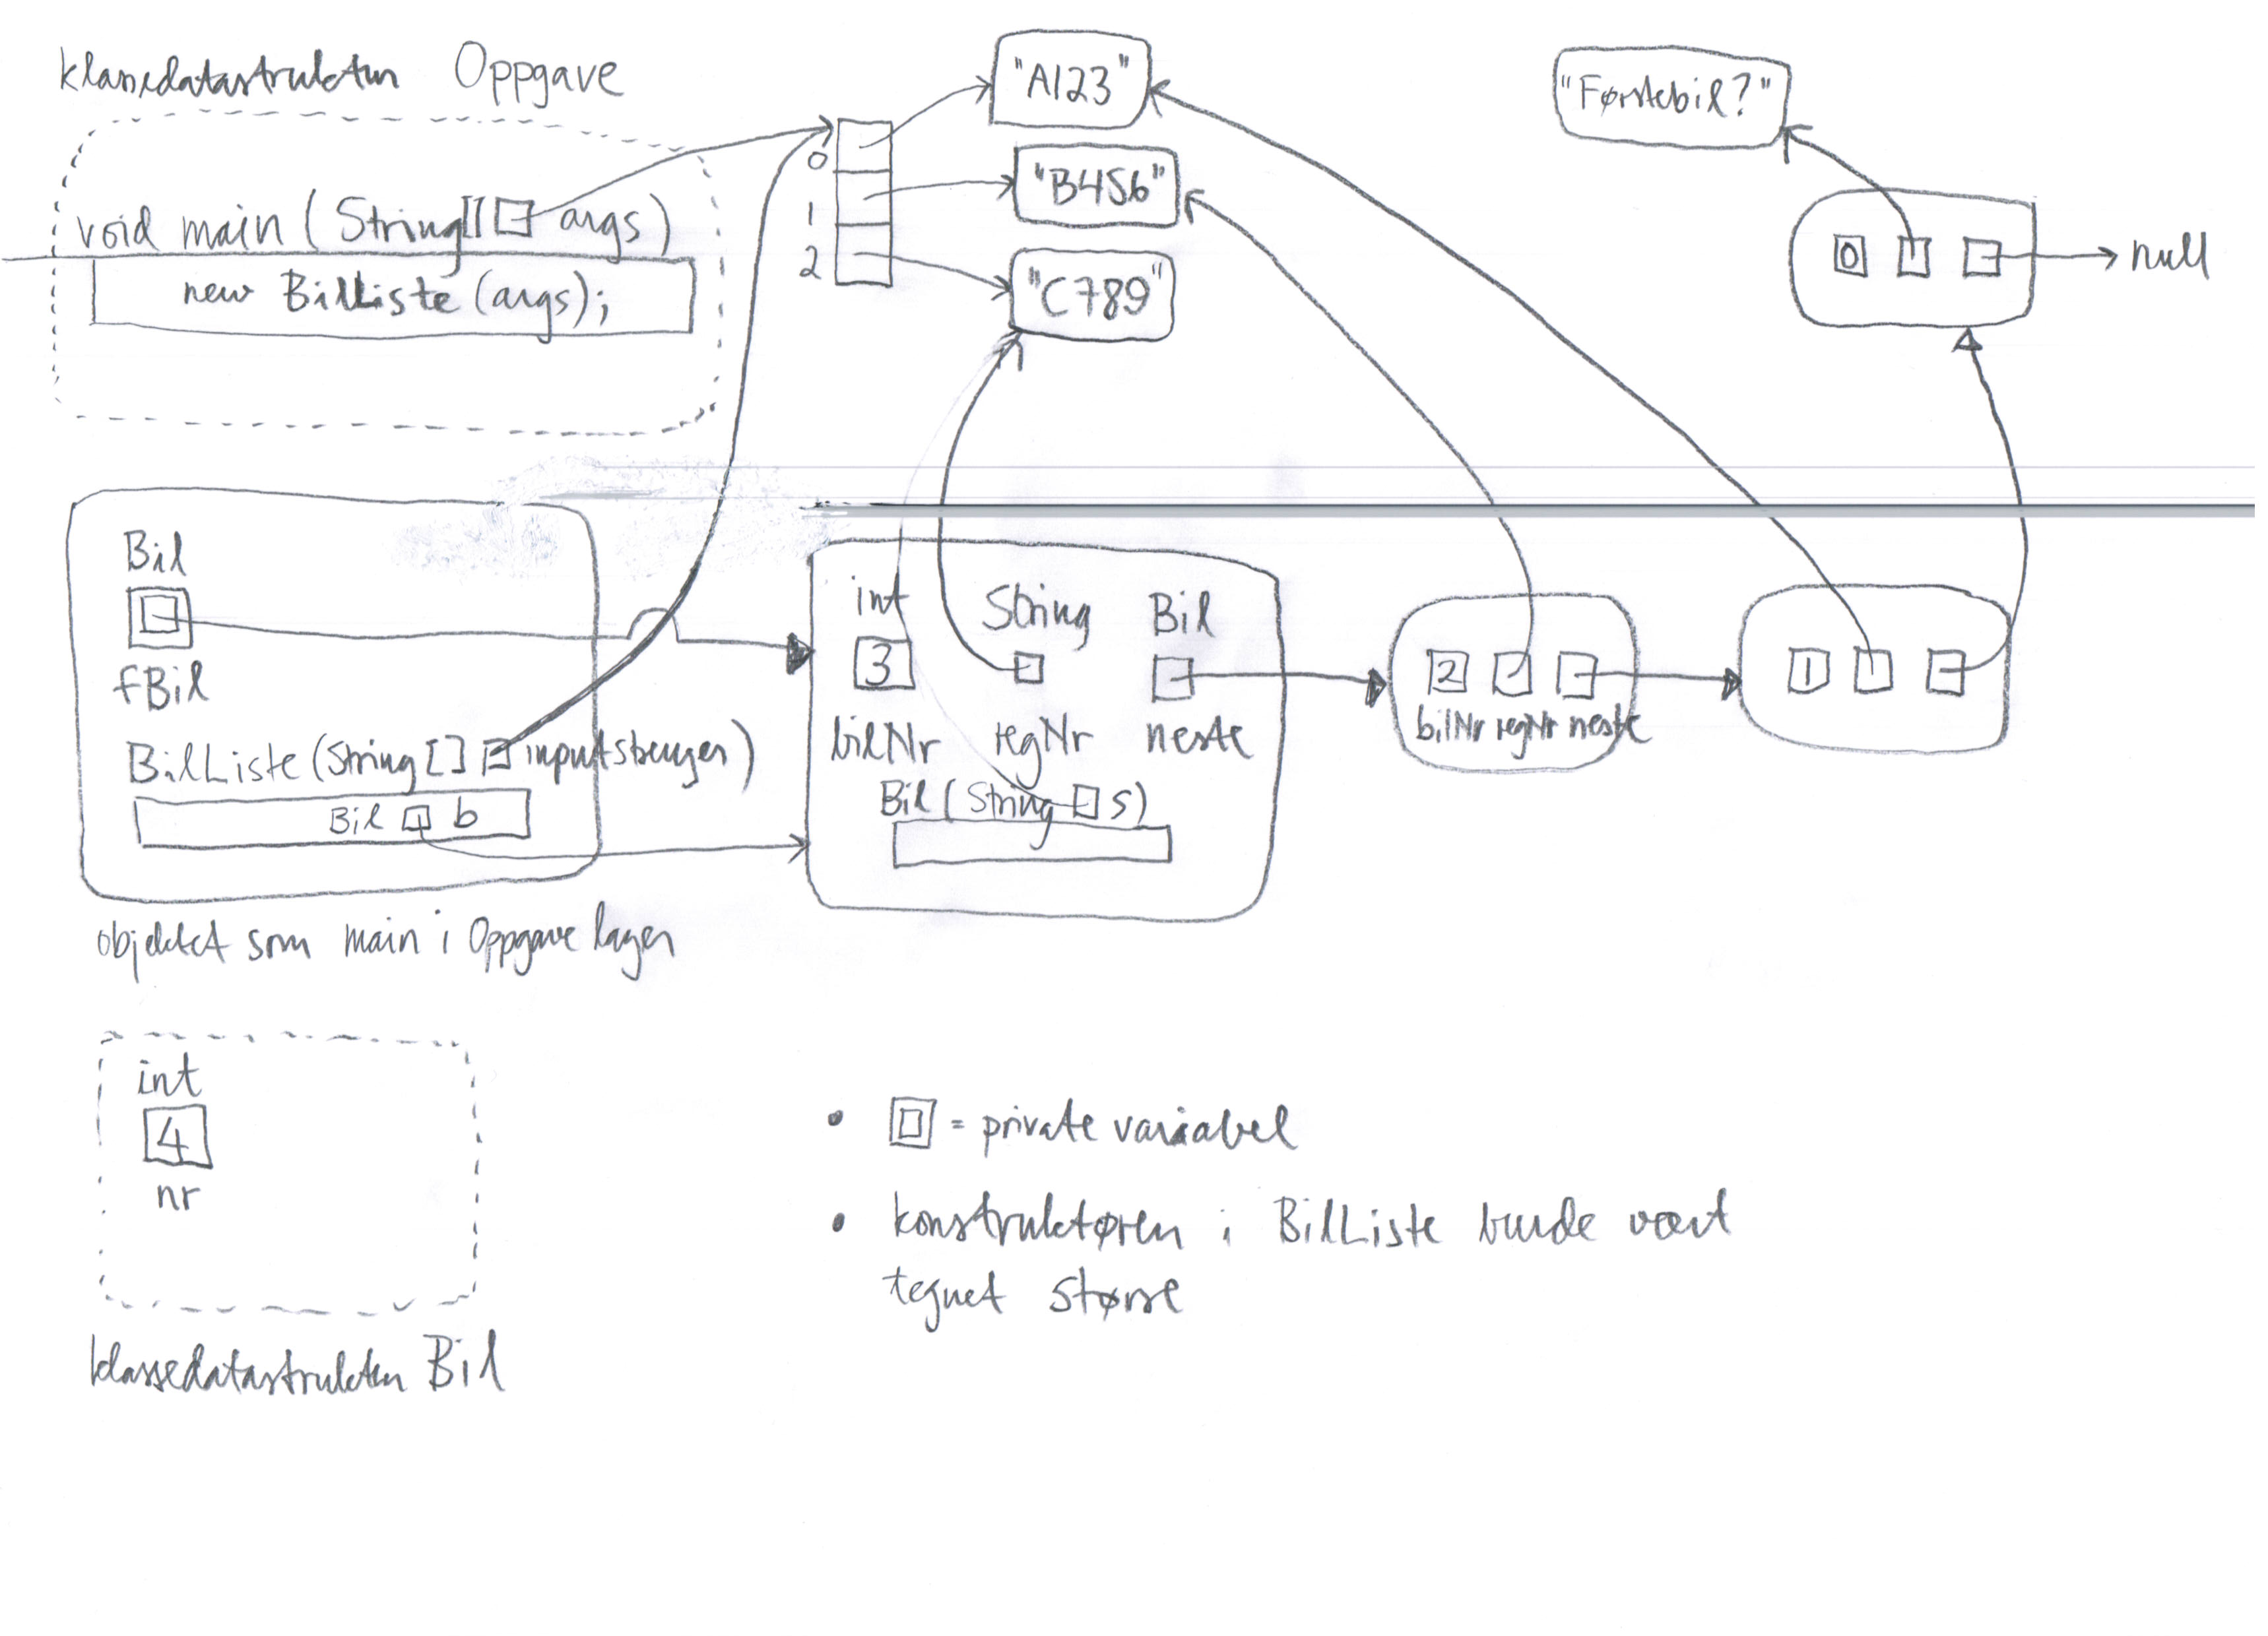 klassedatastrukturen Oppgave
void main ( String[] args )
new BilListe (args);
0
1
2
"A123"
"B456"
"C789"
"Førstebil?"
0
null
Bil
fBil
BilListe (String [] inputstrenger)
Bil b
objektet som main i Oppgave lager
int String Bil
3
bilNr regNr neste
Bil ( String s)
2
bilNr regNr neste
1
int
4
nr
klassedatastrukturen Bil
• = private variabel
• konstruktøren i BilListe burde vært
tegnet større